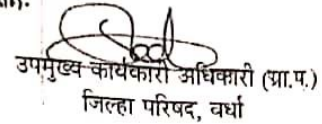 उपमुख्य कार्यकारी अधिकारी (प्रा.प.)
जिल्हा परिषद, वर्धा